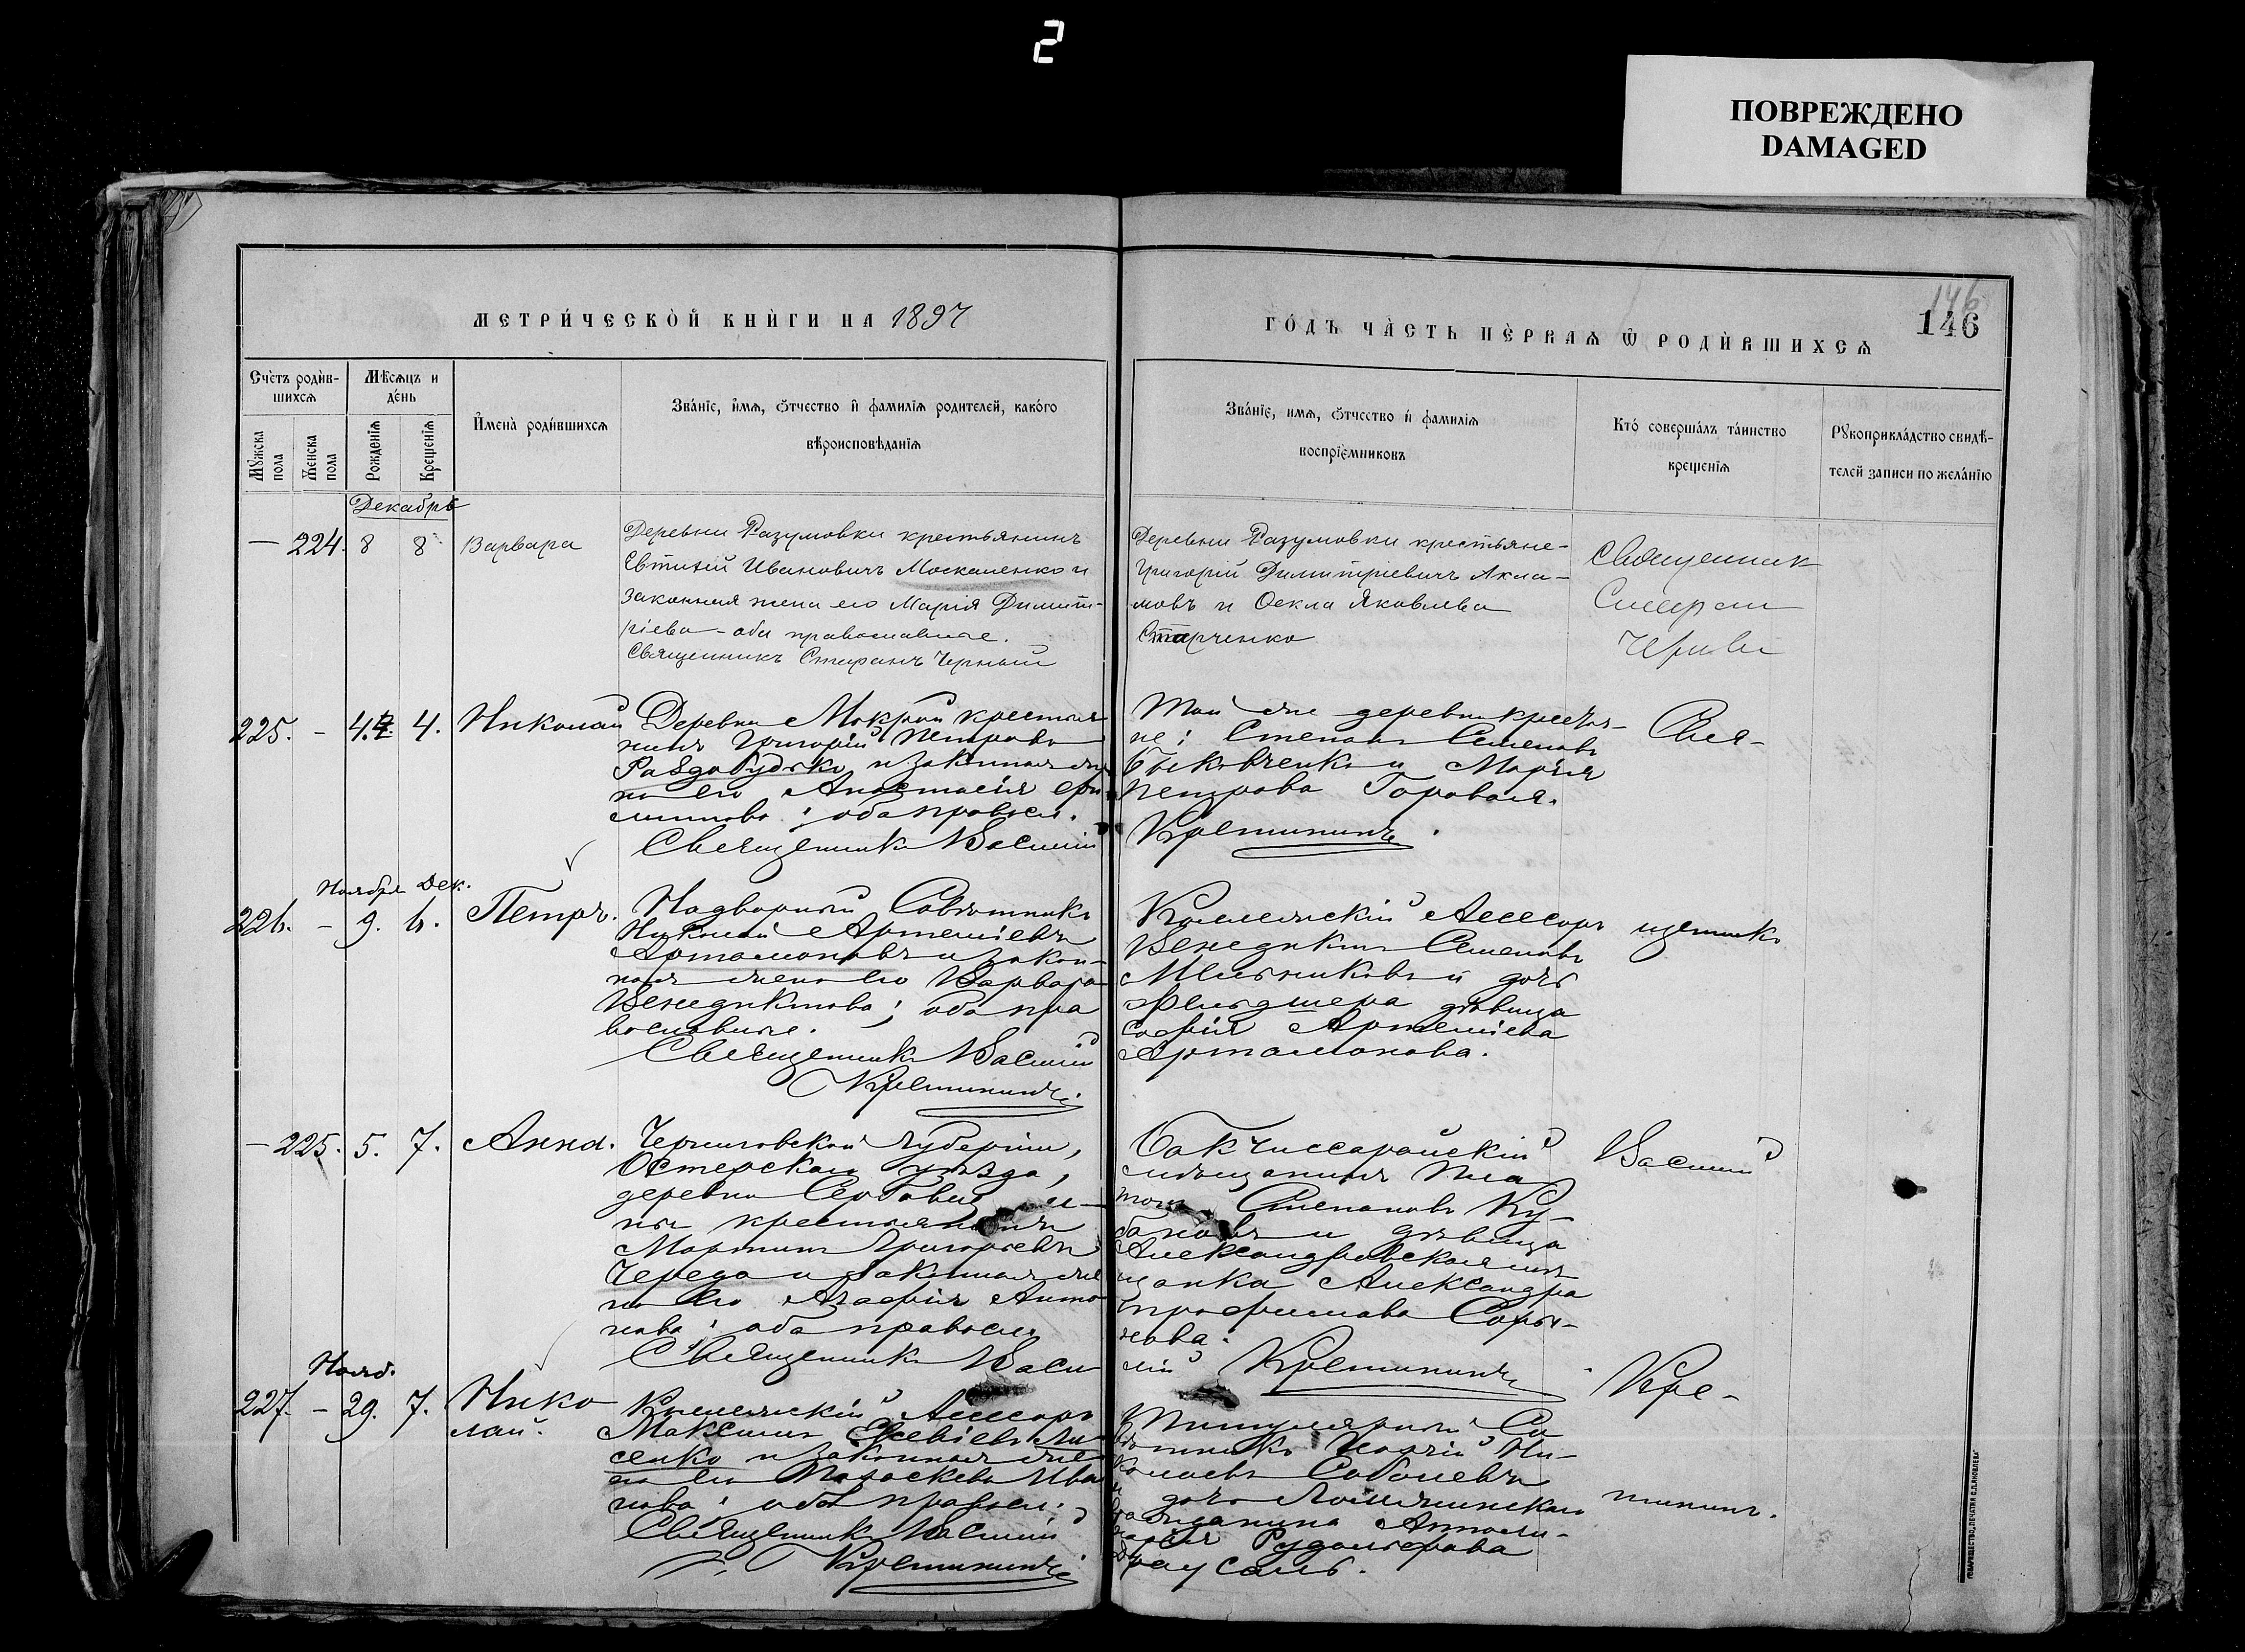 2
ПОВРЕЖДЕНО
DAMAGED
МЕТРИ́ЧЕСКО̀Й КНЍГИ НА 1897
ГО́ДЪ ЧА̀СТЬ ПЀРВАѦ Ѽ РОДЍВШИХСѦ
146
146
Счѐтъ роди̂в-
шихсѧ
Мѣ́сѧцъ и
де́нь
Мꙋжска
пола
Женска
пола
Рожденїѧ
Крещенїѧ
И҆мена̀ роди́вшихсѧ
Зва́нїе, и҆́мѧ, ѻ҆́тчество и҆ фами́лїѧ родителей, како́го
вѣроисповѣ́данїѧ
Зва́нїе, имѧ, ѻ҆́тчество и҆ фами́лїѧ
воспрїе́мниковъ
Кто́ соверша́лъ та́инство
креще́нїѧ
Рꙋкоприкла́дство свидѣ́-
телей записи по жела́нїю
Декабрь
— 224. 8 8 Варвара
Деревни Разумовки крестьянинъ
Евтихій Ивановичъ Москаленко и
законная жена его Марія Димит-
ріева - оба православные.
Священникъ Стефанъ Черный
Деревни Разумовки крестьяне-
Григорій Димитріевичъ
и Ѳекла Яковлева
Старченко
Священник
Стефан
225. - 4. 4. Николай
Деревни Мокрой крестья
нинъ Григорій Петровъ
и законная же
на его Анастасія Фи
липпова; оба правосл.
Священникъ Василій
Той же деревни крестья-
не: Степанъ Семеновъ
Быковченко и Марія
Петрова Горовая.
Кретининъ.
Свя-
Ноября Дек.
226. - 9. 6. Петръ.
Надворный Совѣтникъ
Николай Артеміевъ
Артамоновъ и закон-
ная жена его Варвара
Венедиктова; оба пра
вославные.
Священникъ Василій
Кретининъ.
Коллежскій Ассесоръ
Венедиктъ Семеновъ
Мельниковъ и дочь
Фельдшера дѣвица
Софія Артеміева
Артамонова.
щенникъ
— 225. 5. 7. Анна.
Черниговской губерніи,
Остерскаго уѣзда,
деревни
крестьянинъ
Мартинъ Григорьевъ
Череда и законная же
на его Агафія Анто
нова; оба правосл.
Священникъ Васи
Бакчиссарайскій
мѣщанинъ Пла
тонъ Степановъ Ку-
бановъ и дѣвица
Александровская мѣ
щанка Александра
Трофимова
лій Кретининъ
Василій
Нояб.
227. - 29. 7. Нико
лай.
Коллежскій Ассесоръ
Максимъ Евсевіевъ Ли
сенко и законная же
на его Параскева Ива
нова; оба правосл.
Священникъ Василій
Кретининъ.
Титулярный Со
вѣтникъ Ни-
колаевъ Соболевъ
дочь
гражданина
Рудольфова
Кре-
тининъ.